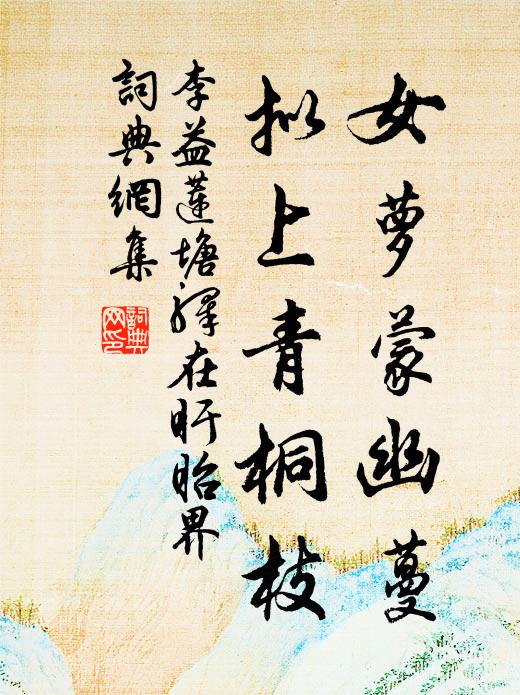 女萝蒙幽蔓
拟上青桐枝
李益莲塘驿在盱眙界
詞典網集
詞典
网印